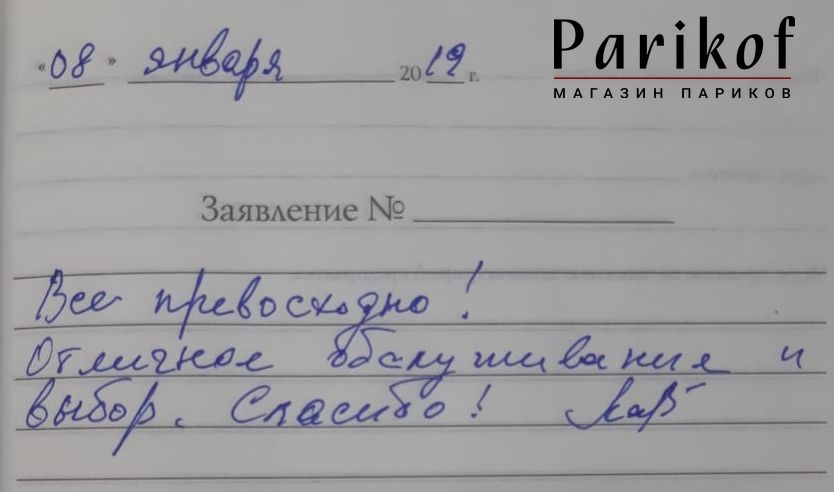 Parikof
МАГАЗИН ПАРИКОВ
«08» января 2019 г.
Заявление №
Все превосходно!
Отличное обслуживание и
выбор. Спасибо!